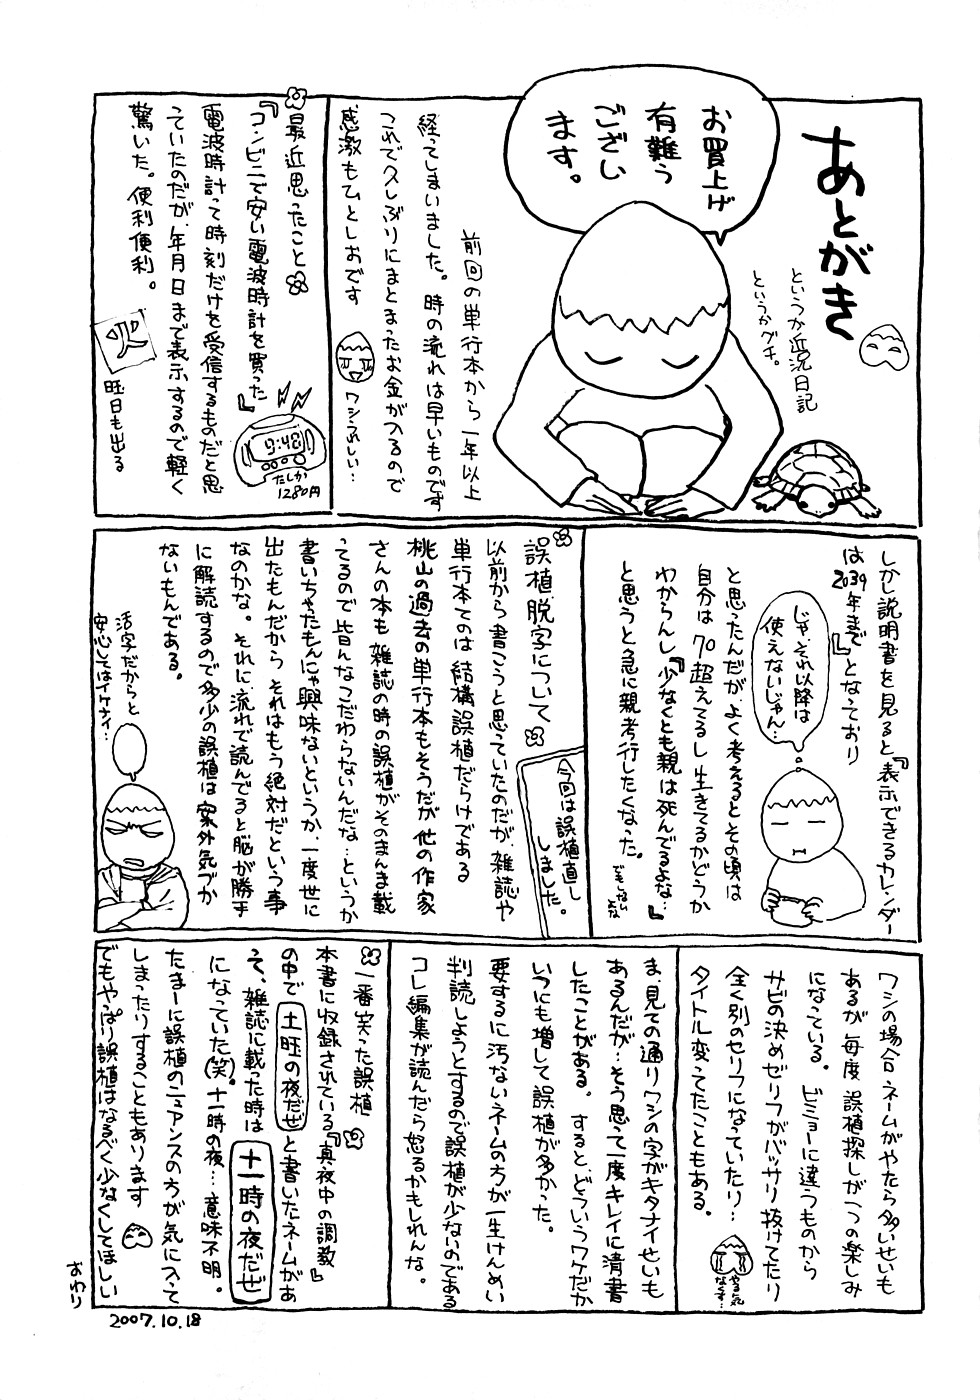 あとがき
というか近況日記
というかグチ。
お買上げ
有難う
ござい
ます。
前回の単行本から一年以上
経ってしまいました。時の流れは早いものです
これで久しぶりにまとまったお金が入るので
感激もひとしおです
ワシうれしい…
最近思ったこと
『コンビニで安い電波時計を買った』
電波時計って時刻だけを受信するものだと思
っていたのだが、年月日まで表示するので軽く
驚いた。便利便利。
9:48
たしか
1280円
火
曜日も出る
しかし説明書を見ると『表示できるカレンダー
は2039年まで』となっており
じゃ、それ以降は
使えないじゃん…
と思ったんだが、よく考えるとその頃は
自分は70超えてるし生きてるかどうか
わからんし『少なくとも親は死んでるよな…』
と思うと急に親孝行したくなった。
誤植脱字について
以前から書こうと思っていたのだが、雑誌や
単行本てのは結構誤植だらけである
桃山の過去の単行本もそうだが他の作家
さんの本も雑誌の時の誤植がそのまんま載
ってるので皆んなこだわらないんだな…というか
書いちゃたもんにゃ興味ないというか、一度世に
出たもんだからそれはもう絶対だという事
なのかな。それに流れで読んでると脳が勝手
に解読するので多少の誤植は案外気づか
ないもんである。
今回は誤植直し
しました。
活字だからと
安心してはイケナイ…
ワシの場合ネームがやたら多いせいも
あるが毎度誤植探しが一つの楽しみ
になっている。ビミョーに違うものから
サビの決めゼリフがバッサリ抜けてたり
全く別のセリフになっていたり…
タイトル変ってたこともある。
やる気
なくす…
ま、見ての通りワシの字がキタナイせいも
あるんだが…そう思って一度キレイに清書
したことがある。すると、どういうワケだか
いつにも増して誤植が多かった。
要するに汚ないネームの方が一生けんめい
判読しようとするので誤植が少ないのである
コレ編集が読んだら怒るかもしれんな。
一番笑った誤植
本書に収録されている『真夜中の調教』
の中で土旺の夜だぜと書いたネームがあ
って、雑誌に載った時は十一時の夜だぜ
になっていた(笑)。十一時の夜…意味不明。
たまーに誤植のニュアンスの方が気に入って
しまったりすることもあります
でもやっぱり誤植はなるべく少なくしてほしい
おわり
2007.10.18